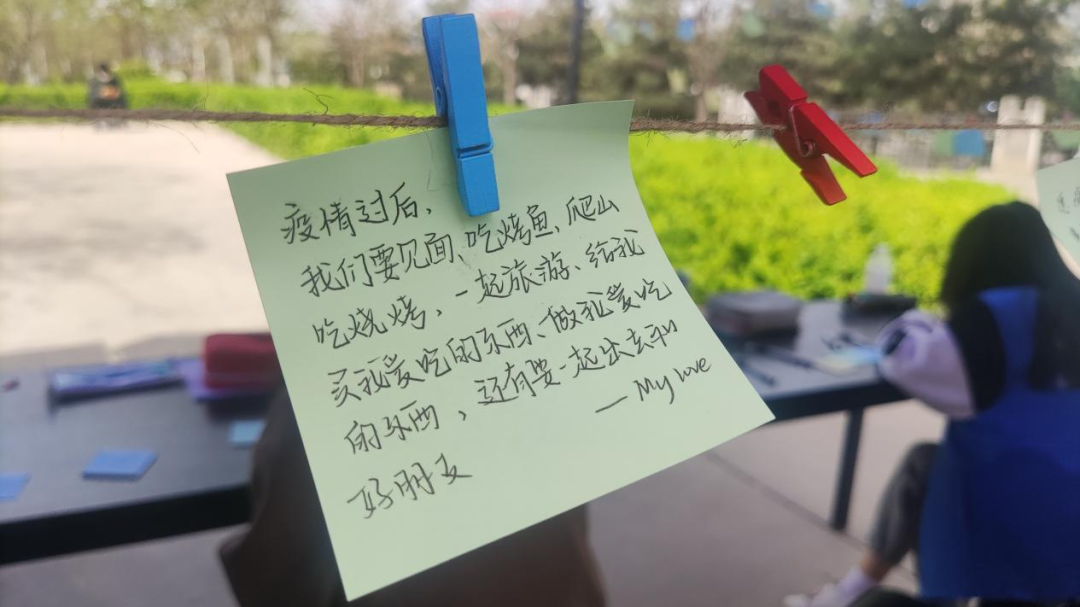 疫情过后，
我们要见面、吃烤鱼、爬山
吃烧烤，一起旅游、给我
买我爱吃的东西、做我爱吃
的东西，还有要一起出去玩
— My love
好朋友